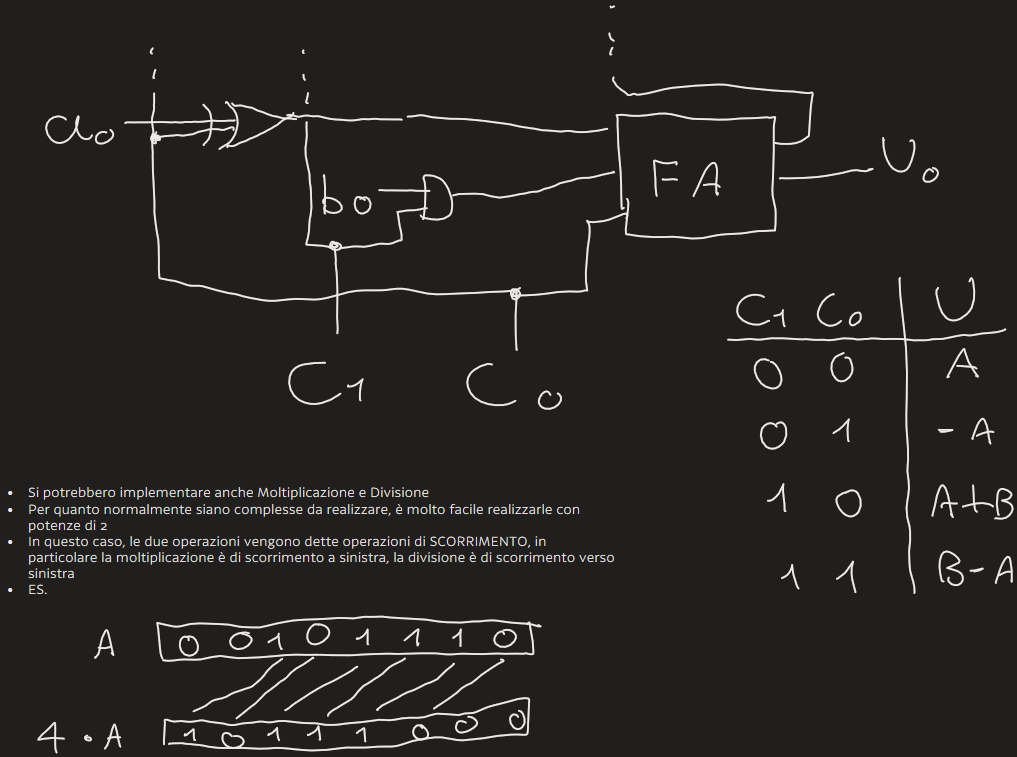 a0
b0
FA
U0
C1 C0
C1 C0 U
0 0 A
0 1 -A
1 0 A+B
1 1 B-A
• Si potrebbero implementare anche Moltiplicazione e Divisione
• Per quanto normalmente siano complesse da realizzare, è molto facile realizzarle con
potenze di 2
• In questo caso, le due operazioni vengono dette operazioni di SCORRIMENTO, in
particolare la moltiplicazione è di scorrimento a sinistra, la divisione è di scorrimento verso
sinistra
• ES.
A 0 0 1 0 1 1 1 0
4·A 1 0 1 1 1 0 0 0